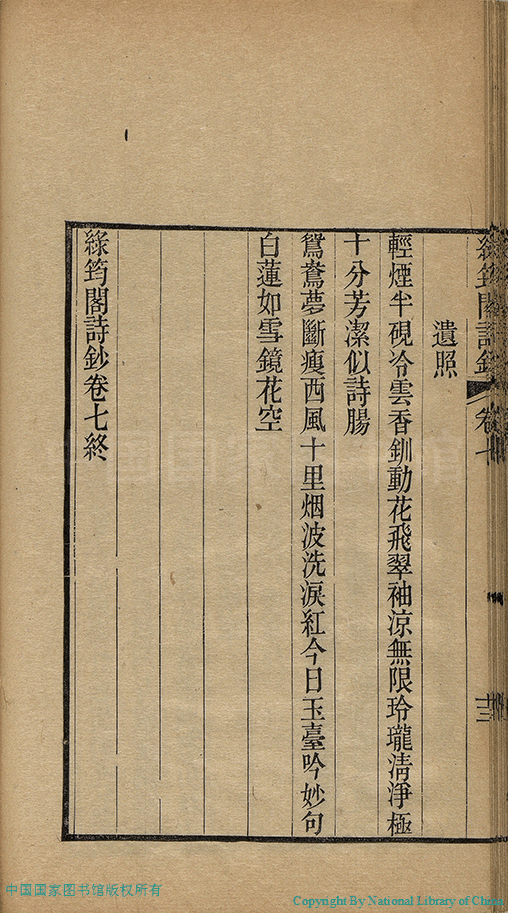 遺照
輕煙半硯冷雲香釧動花飛翠袖涼無限玲瓏淸淨極
十分芳潔似詩腸
鴛鴦夢斷瘦西風十里烟波洗淚紅今日玉臺吟妙句
白蓮如雪鏡花空
綠筠閣詩鈔卷七終
綠筠閣詩鈔 卷七
十三
中国国家图书馆版权所有
Copyright By National Library of China